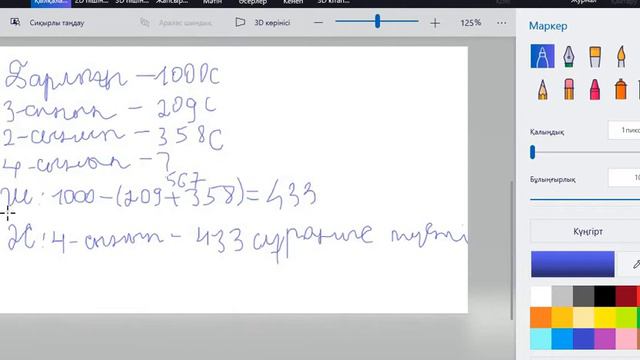 Қалқала... 2D пішін... 3D пішін... Жапсыр... Мәтін Әсерлер Кенеп 3D кітап... Журнал
Сиқырлы таңдау Аралас шындық 3D көрінісі 125%
Маркер
Қалыңдық 1 пикс
Бұлыңғырлық 10
Күңгірт
Барлығы – 1000С
3-сынып – 209С
2-сынып – 358С
4-сынып – ?
567
Ш: 1000–(209+358)=433
Ж: 4-сынып – 433